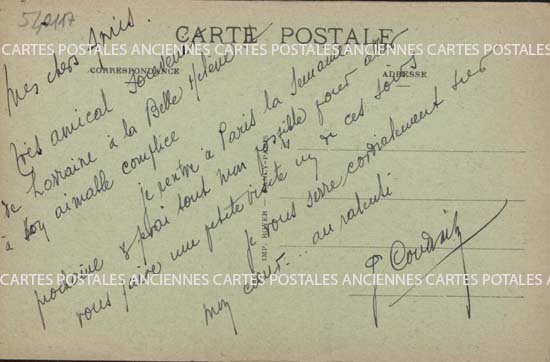 54117
CARTE POSTALE
CORRESPONDANCE
ADRESSE
CARTES POSTALES ANCIENNES CARTES POSTALES ANCIENNES CARTES POSTALES ANCIENNES
Mes chers Amis.
Très amical souvenir
de Lorraine à la Belle Hélène &
à son aimable complice
je rentre à Paris la semaine
prochaine & ferai tout mon possible pour aller
vous faire une petite visite un de ces soirs
Je vous serre cordialement sur
mon cœur... au ralenti
IMP. ROYER
CARTES POSTALES ANCIENNES CARTES POSTALES ANCIENNES CARTES POSTALES ANCIENNES